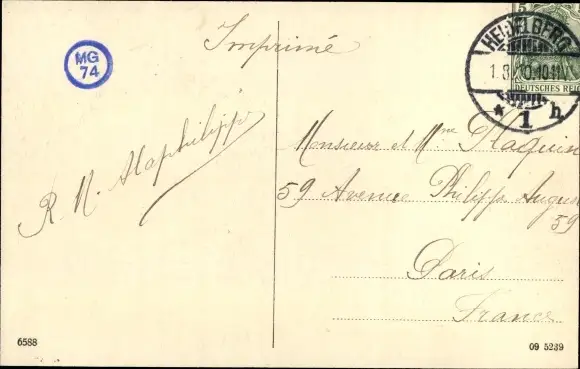 Imprimé
MG
74
5
HEIDELBERG
1.3.10.10-11
DEUTSCHES REICH
* 1 h
R. M. Alaphilippe
Monsieur et Mme Haquin
59 Avenue Philippe Auguste
59
Paris
France
6588
09 5239